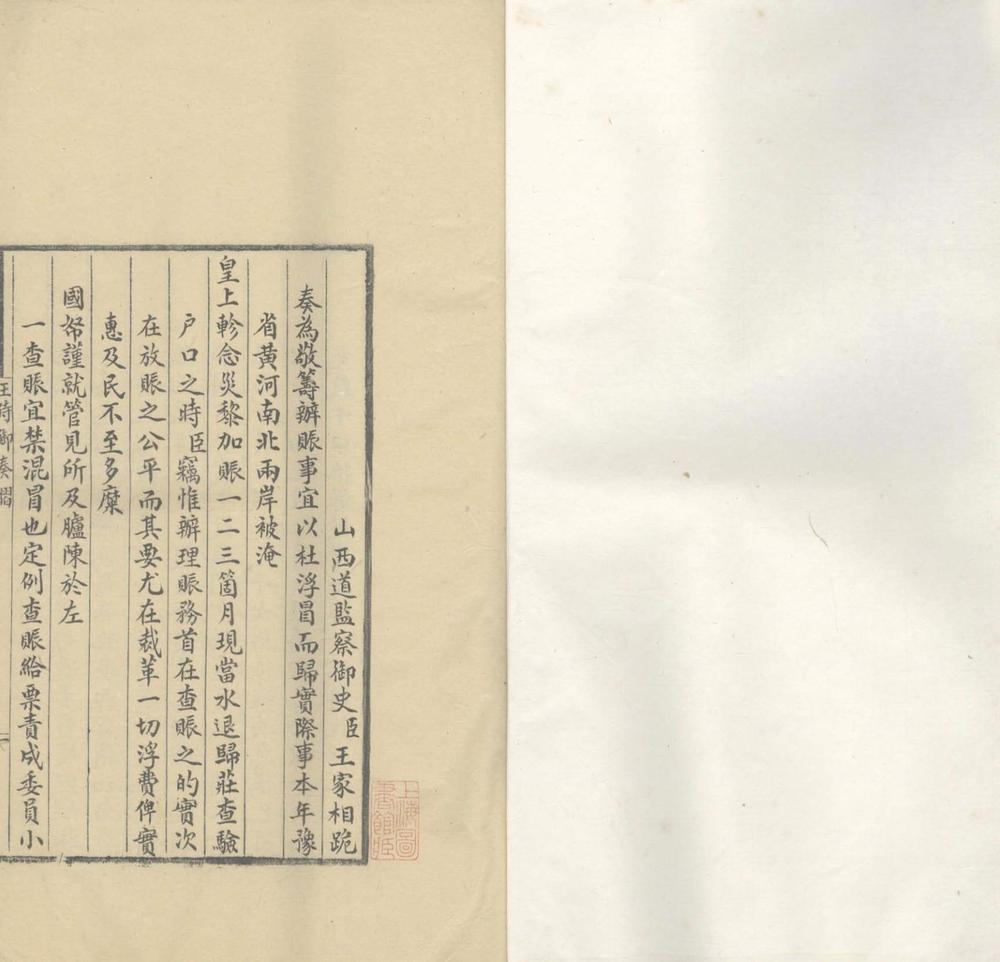 山西道監察御史臣王家相跪
奏為敬籌辦賑事宜以杜浮冒而歸實際事本年豫
省黃河南北兩岸被淹
皇上軫念災黎加賑一二三箇月現當水退歸莊查驗
户口之時臣竊惟辦理賑務首在查賑之的實次
在放賑之公平而其要尤在裁革一切浮費俾實
惠及民不至多糜
國帑謹就管見所及臚陳於左
一查賑宜禁混冒也定例查賑給票責成委員小
王侍御奏摺
一
上海圖
書館藏